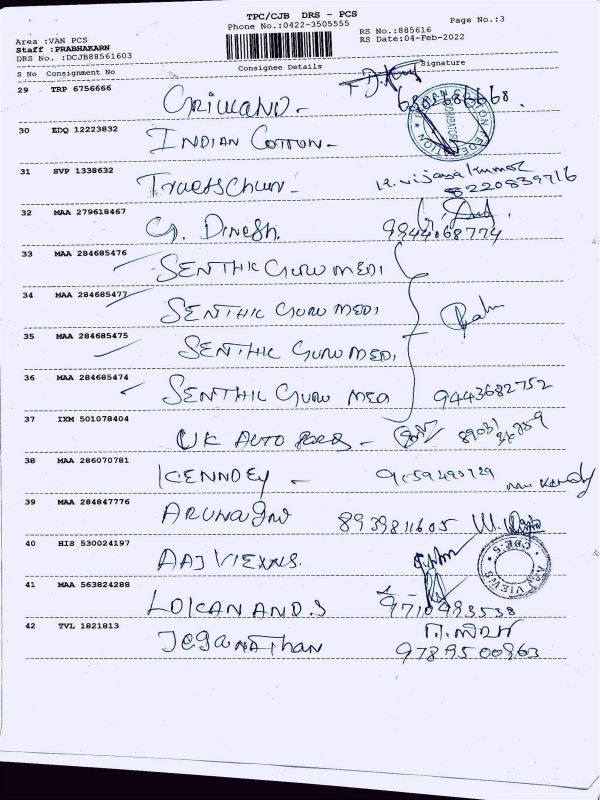 TPC/CJB DRS - PCS
Phone No.:0422-3505555
Page No.:3
RS No.:885616
RS Date:04-Feb-2022
Area :VAN PCS
Staff :PRABHAKARN
DRS No. :DCJB88561603
S No Consignment No Consignee Details Signature
29 TRP 6756666
30 EDQ 12223832 INDIAN COTTON-
31 SVP 1338632 K. Vijaya Kumar
8220839716
32 MAA 279618467 G. Dinesh.
9944068774
33 MAA 284685476 SENTHIL GURU MEDI
34 MAA 284685477 SENTHIL GURU MEDI
35 MAA 284685475 SENTHIL GURU MEDI
36 MAA 284685474 SENTHIL GURU MED 9443682752
37 IXM 501078404 UK AUTO
38 MAA 286070781 KENNDEY -
39 MAA 284847776 8939811605
40 HIS 530024197 AAJ VIEWS.
AAJ VIEWS
41 MAA 563824288 LOKANAND.S
9710983538
42 TVL 1821813 JEGANATHAN
9789500863